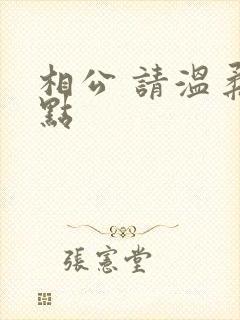 相公 請溫柔
點
張憲堂